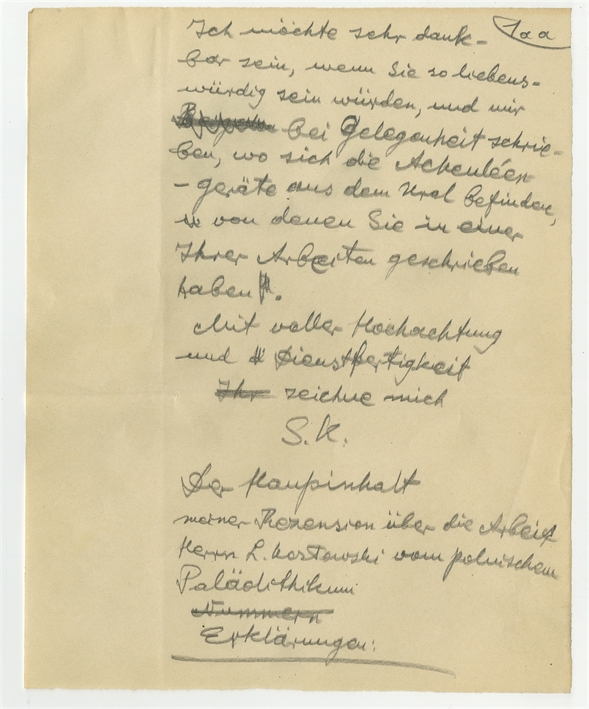 1aa
Ich möchte sehr dank-
bar sein, wenn Sie so liebens-
würdig sein würden, und mir
bei Gelegenheit schrie-
ben, wo sich die Acheuléen
- geräte aus dem Ural befinden,
von denen Sie in einer
Ihrer Arbeiten geschrieben
haben.
Mit voller Hochachtung
und Dienstfertigkeit
Ihr zeichne mich
S.K.
Der Haupinhalt
meiner Rezension über die Arbeit
Herrn L. Kozłowski vom polnischem
Paläolithikum
Nummern
Erklärungen: